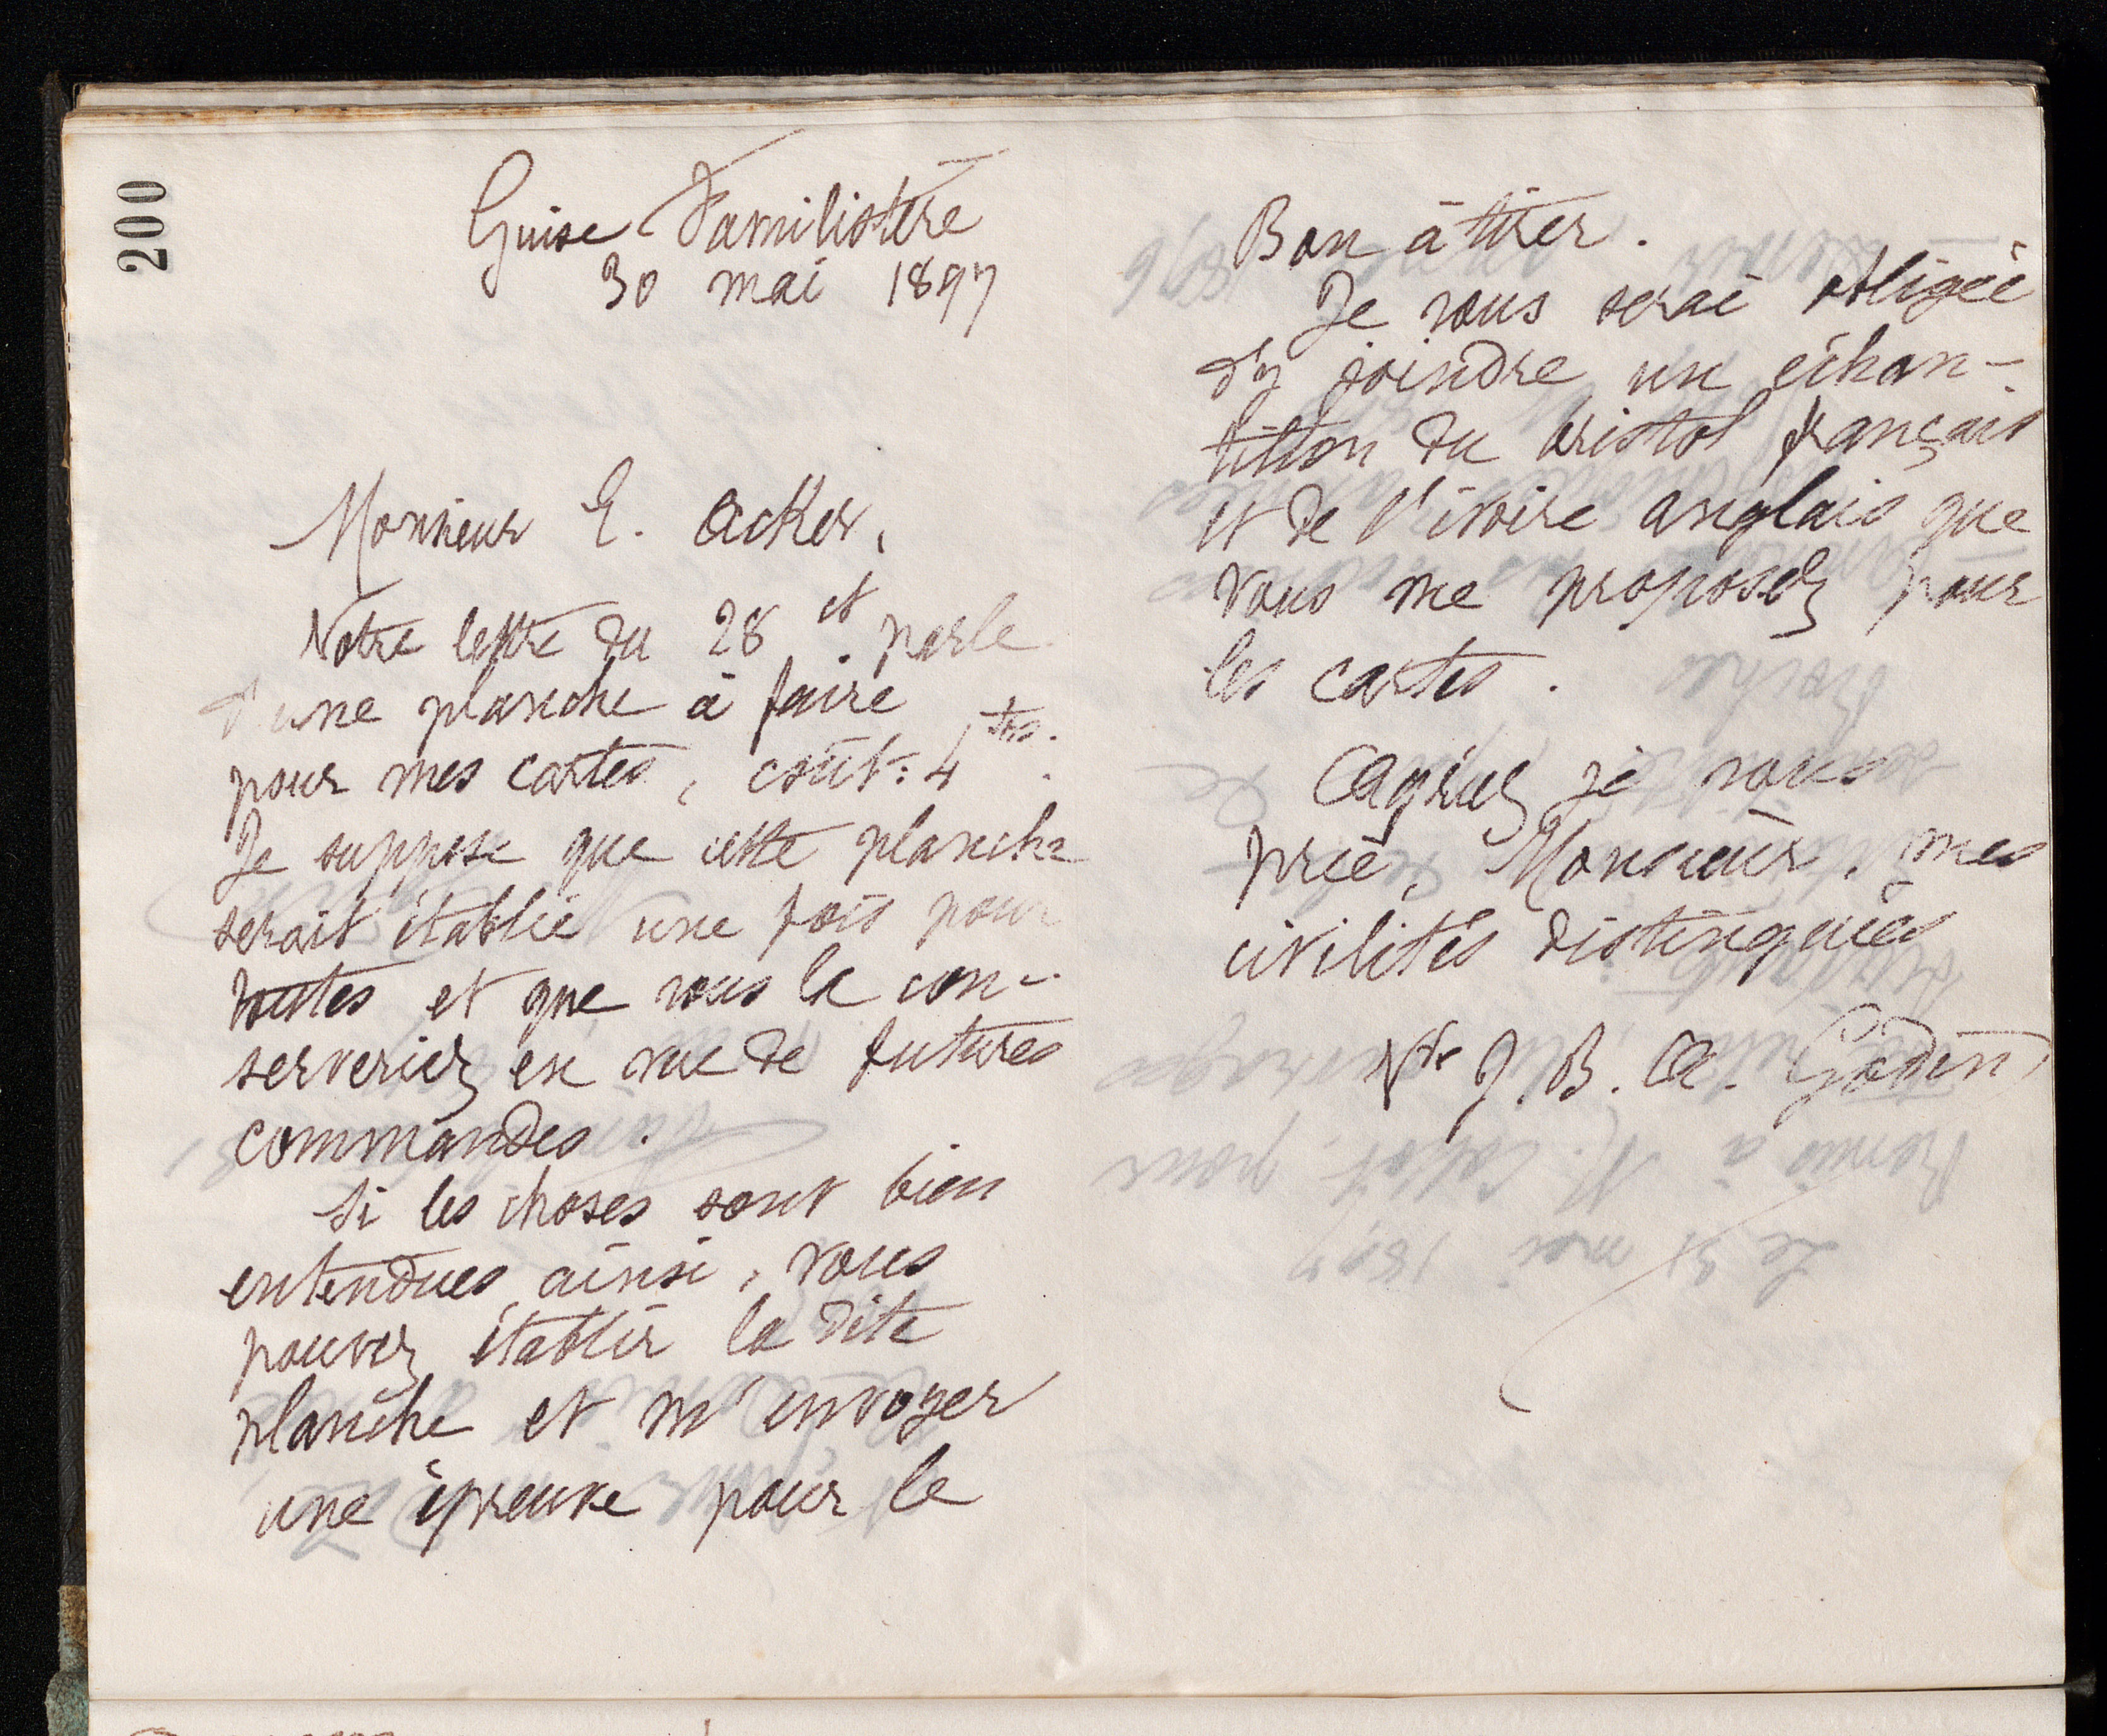 200
Guise Familistère
30 mai 1897
Monsieur E. Acker,
Votre lettre du 28 ct parle
d'une planche à faire
pour mes cartes, coût: 4 frs.
Je suppose que cette planche
serait établie une fois pour
toutes et que vous la con-
serveriez en vue de futures
commandes.
Si les choses sont bien
entendues ainsi, vous
pouvez établir la dite
planche et m'envoyer
une épreuve pour le
Bon à tirer.
Je vous serai obligée
d'y joindre un échan-
tillon du bristol français
et de l'ivoire anglais que
vous me proposez pour
les cartes.
Agréez je vous
prie, Monsieur, mes
civilités distinguées
Vve J. B. A. Godin